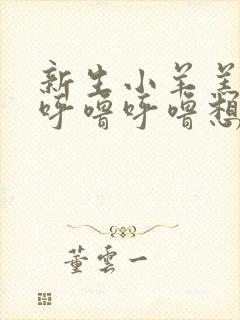 新生小羊羔
呼噜呼噜想
董雲一